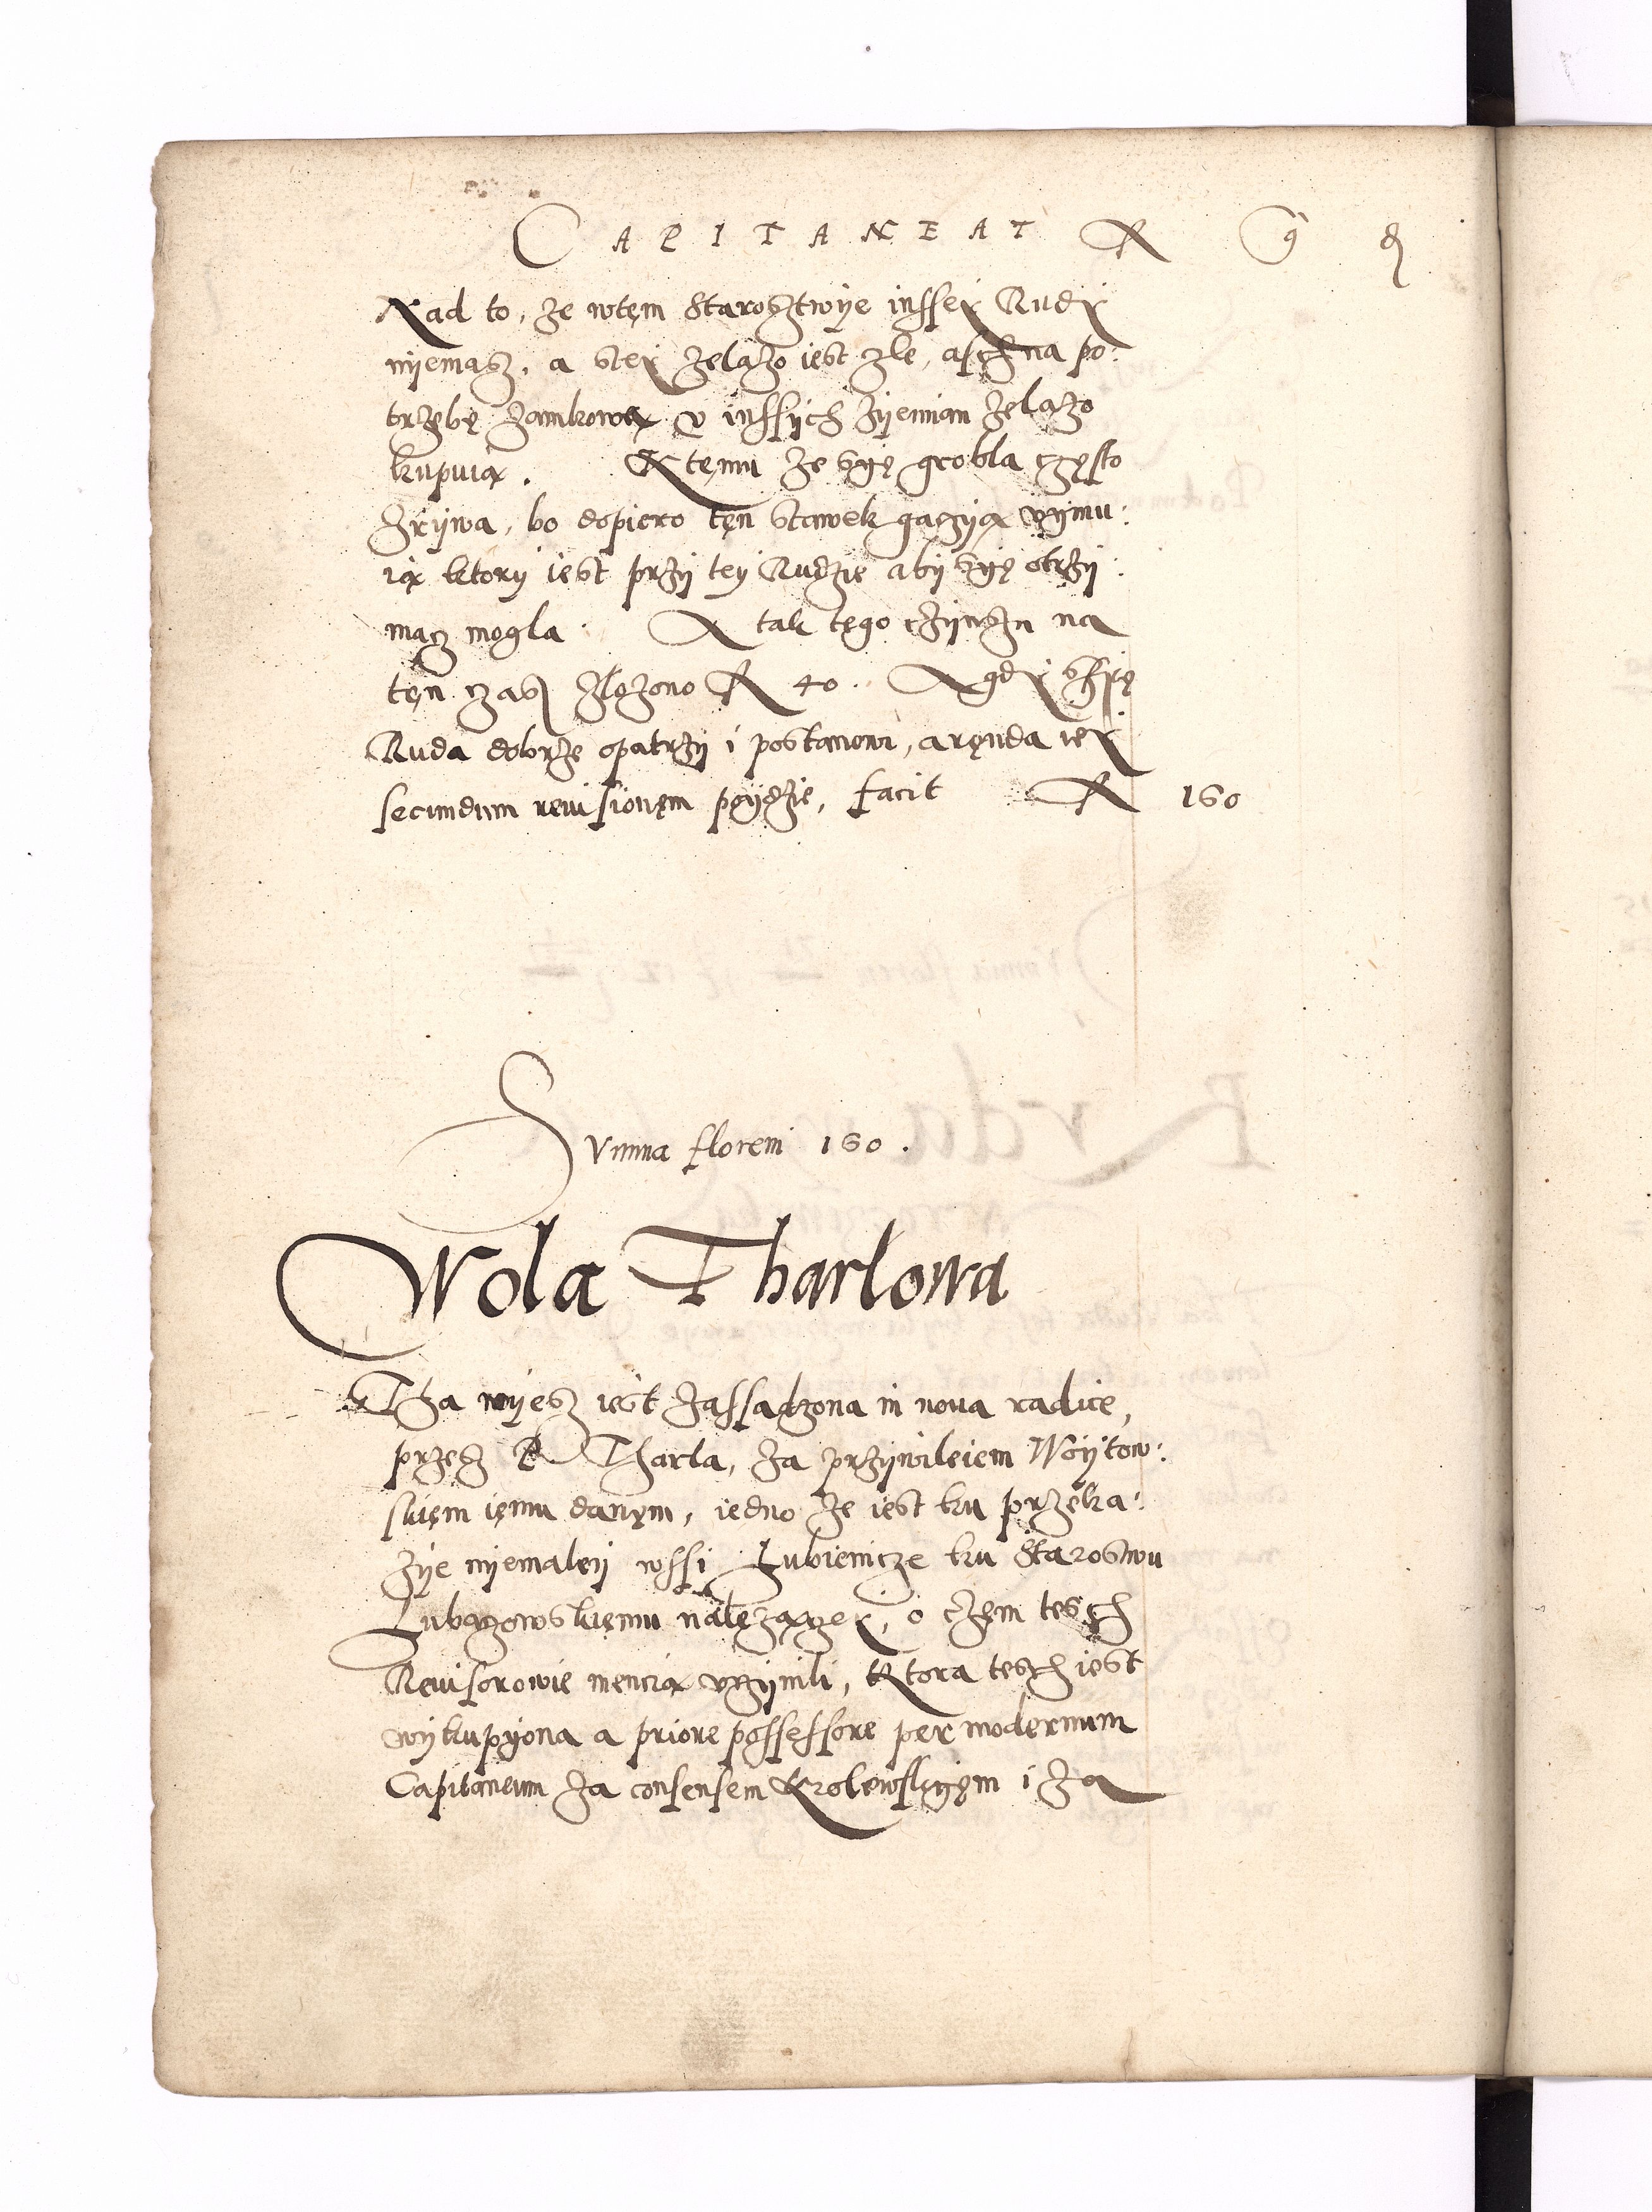 CAPITANEAT R G 9 
Nad to, ze wtęm Starosztwye insseӱ Rudӱ
nyemasz, a steӱ zelazo iest zle, asch na po:
trzebę zamkową v inssych zyemian zelazo
kupuią. Ktęmu ze syę grobla często
zrywa, bo dopiero tęn stawek gaczyą vymu:
ią ktory iest przy tey Rudzie aby syę otrzy:
macz mogla. A tak tęgo czynszu na
tęn czas zlozono R 40. A gdӱ syę
Ruda dobrze opatrzy i postanowi, aręnda ieӱ
secundum reuisionęm poydzie, facit R 160
Summa floreni 160.
Wola Tharlowa
Tha wyesz iest zassadzona in noua radice,
przesz P Tharla, za przywileiem Woytow:
skięm ięmu danęm, iedno ze iest ku przeka:
zye nyemaley wssi Lubienicze ku Starostwu
Lubaczowskięmu nalęzączeӱ, o częm tesch
Reuisorowie mencią vczynili, Ktora tesch iest
wykupyona a priore possessore per modernum
Capitaneum za consensem Krolewskyęm i za